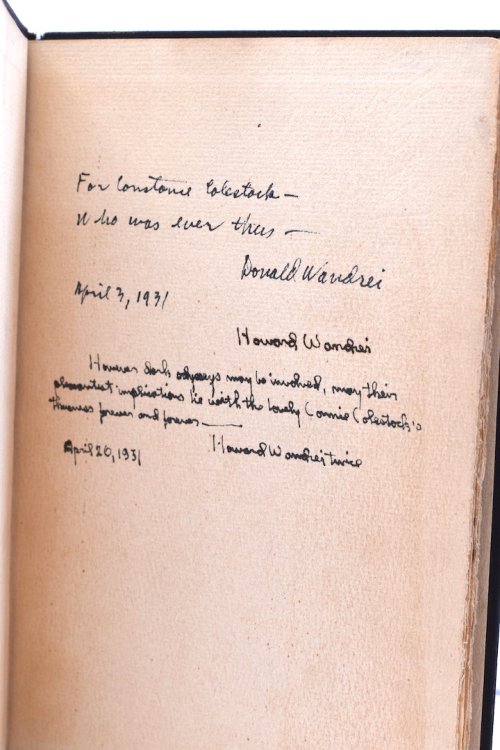 For Constance Colestock —
Who was ever thus —
Donald Wandrei
April 3, 1931
Howard Wandrei
However dark odysseys may be involved, may their
pleasantest implications lie with the lovely Connie Colestock's
forever and forever ———
Howard Wandrei twice
April 20, 1931